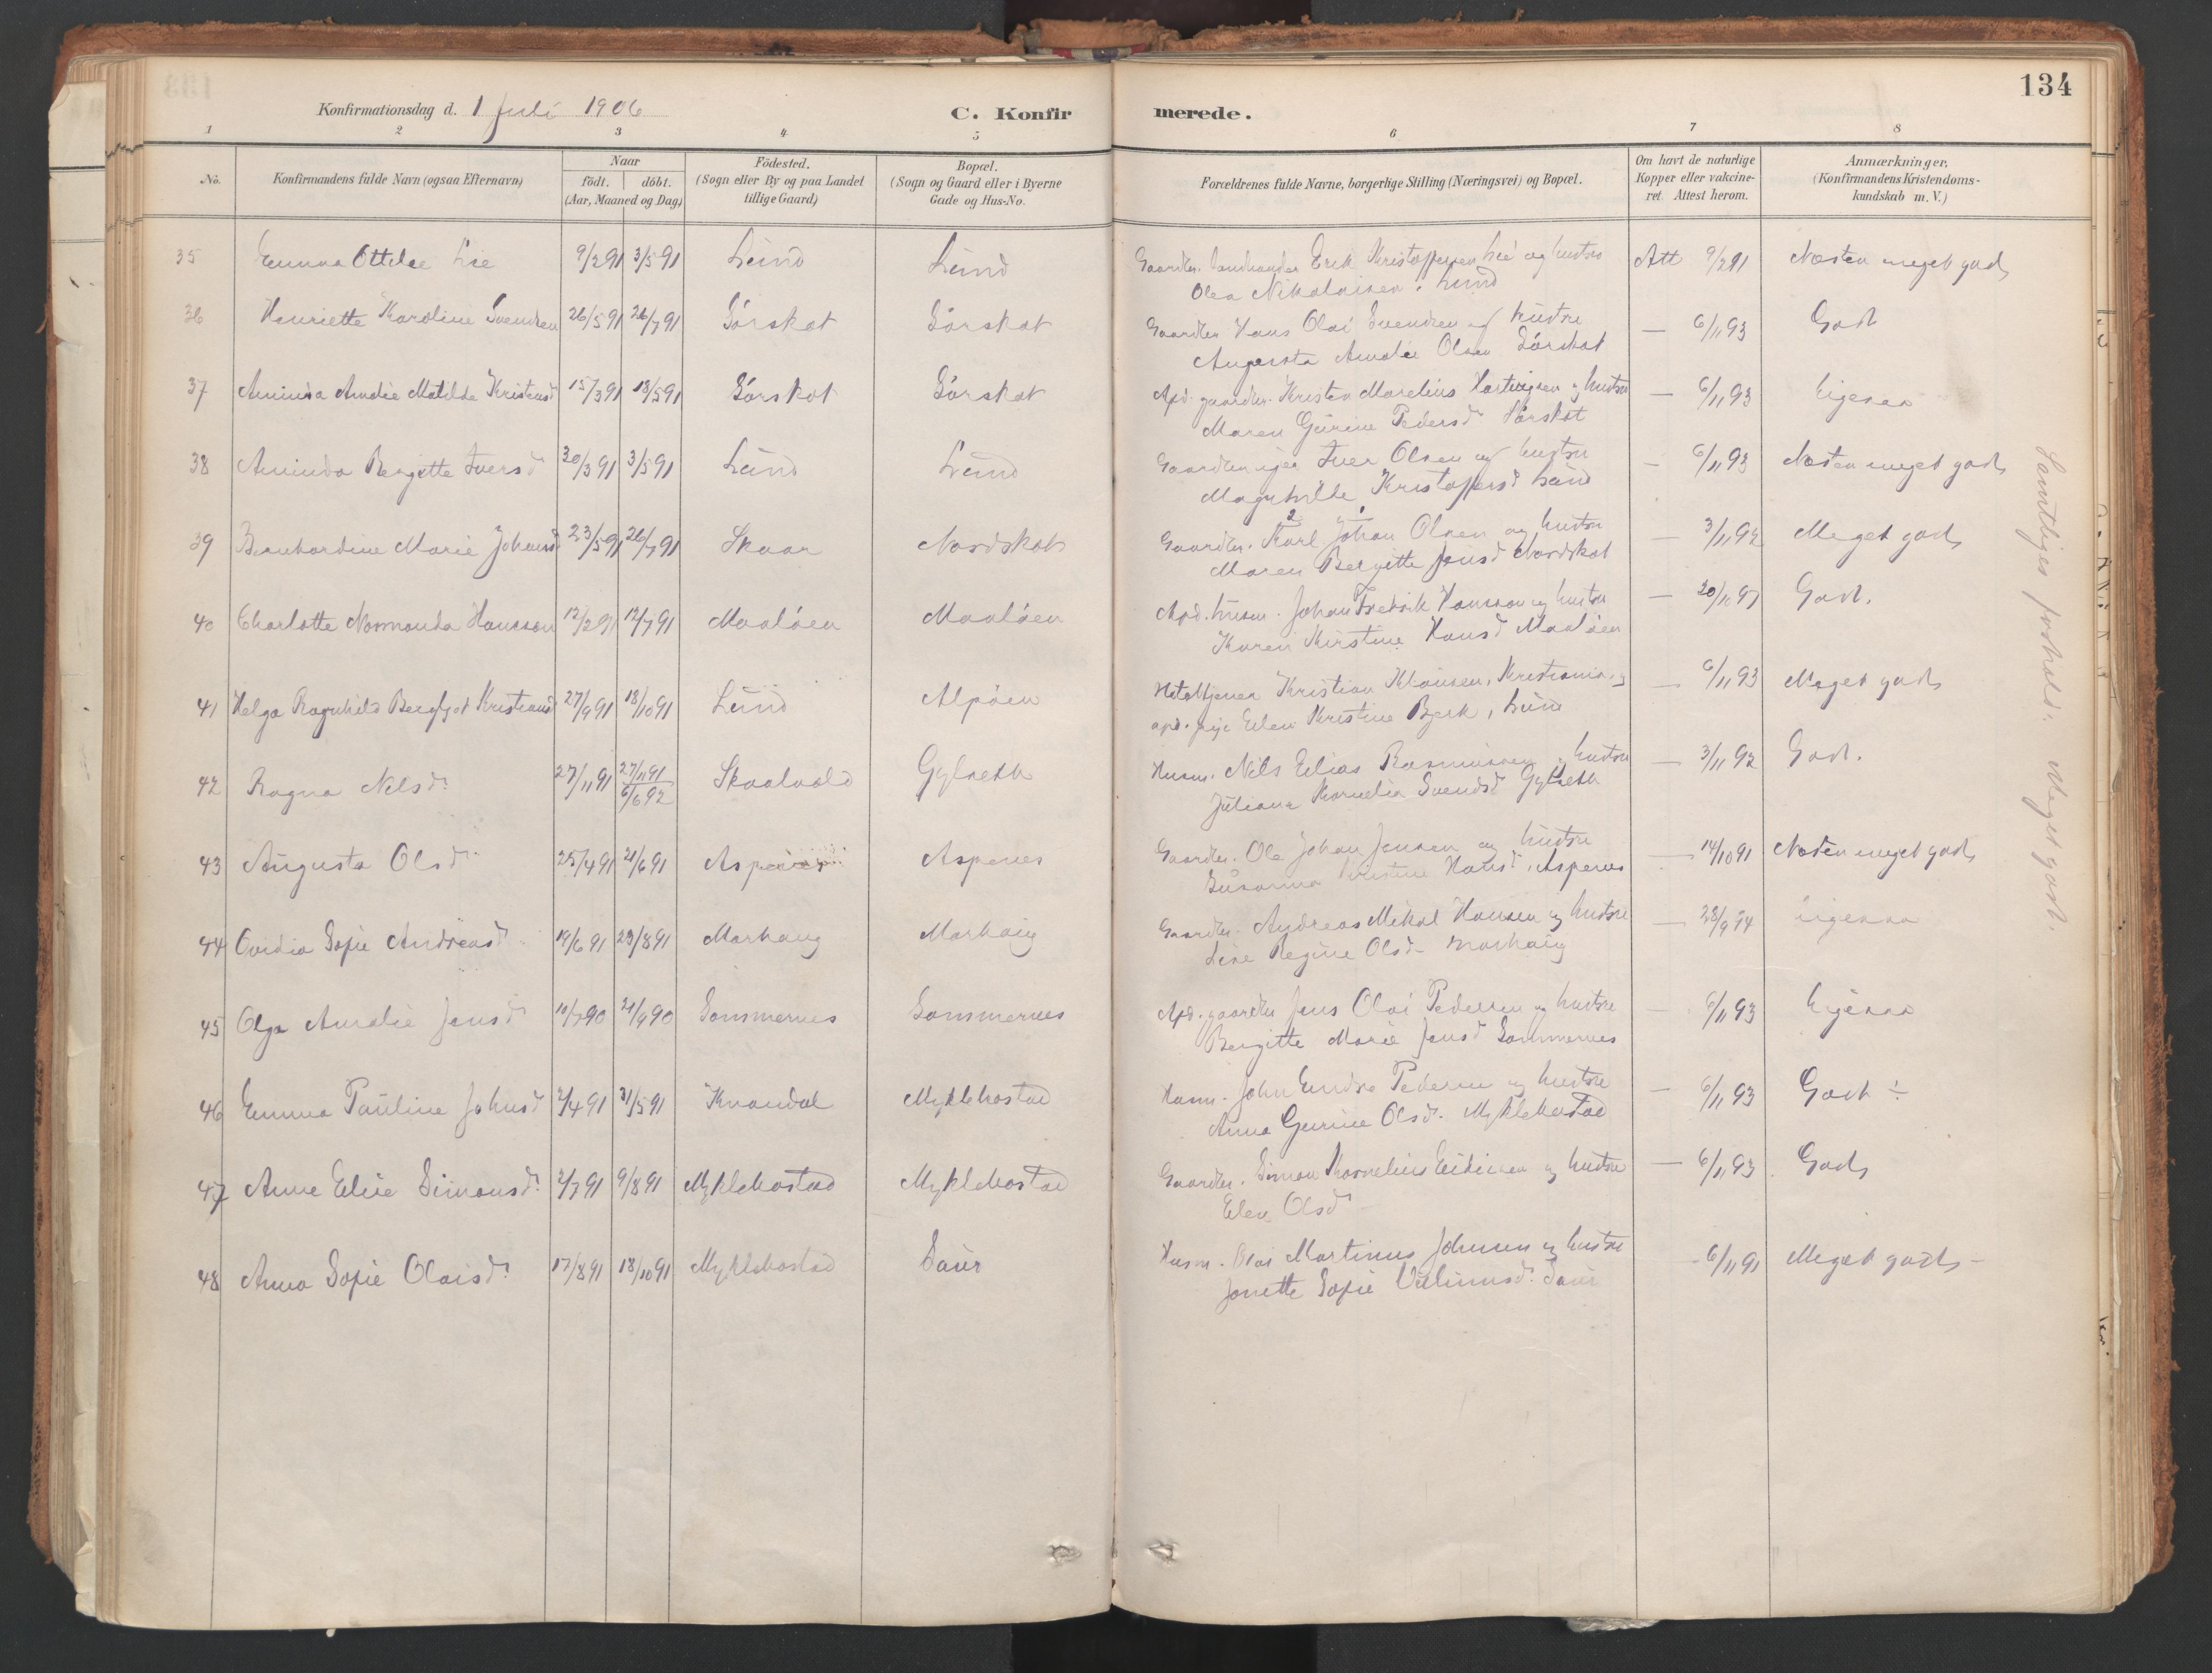 134
Konfirmationsdag d. 1 Juli 1906
C. Konfirmerede.
1 2 3 4 5 6 7 8
No.
Konfirmandens fulde Navn (ogsaa Efternavn)
Naar
födt. döbt.
(Aar, Maaned og Dag)
Födested.
(Sogn eller By og paa Landet
tillige Gaard)
Bopæl.
(Sogn og Gaard eller i Byerne
Gade og Hus-No.
Forældrenes fulde Navne, borgerlige Stilling (Næringsvei) og Bopæl.
Om havt de naturlige
Kopper eller vakcine-
ret. Attest herom.
Anmærkninger.
(Konfirmandens Kristendoms-
kundskab m. V.)
35 Emma Ottilie Lie 9/2 91 3/5 91 Lund Lund Gaardbr. Landhandler Erik Kristoffersen Lie og hustru Att 9/2 91 Næsten meget godt
Olea Nikolaisen, Lund
36 Henriette Karoline Svendsen 26/5 91 26/7 91 Sórskot Sórskot Gaardbr Hans Olai Svendsen og hustru — 6/11 93 Godt
Augusta Amalie Olsen Sórskot
37 Aminda Amalie Matilde Kristensd 15/3 91 18/5 91 Sórskot Sórskot Apd. gaardbr. Kristen Marelius Hartvigsen og hustru — 6/11 93 Ligesaa
Maren Gurine Pedersd Sórskot
38 Aminda Bergitte Iversd 30/3 91 3/5 91 Lund Lund Iver Olsen og hustru — 6/11 93 Næsten meget godt
Magnhilde Kristoffersd Lund
39 Bernhardine Marie Johansd 23/5 91 26/7 91 Skaar Nordskot Gaardbr. Karl 2 Johan 1 Olsen og hustru — 3/11 92 Meget godt
Maren Bergitte Jensd Nordskot
40 Charlotte Normanda Hansson 12/2 91 12/7 91 Maalóen Maalóen Apd. husm. Johan Fredrik Hansson og hustru — 20/10 97 Godt.
Karen Kirstine Hansd Maalóen
41 Helga Ragnhild Bergljot Kristiansd 27/9 91 18/10 91 Lund Alpóen Hoteltjener Kristian Klausen, Kristiania, og — 6/11 93 Meget godt
apd. pige Elen Kristine Bjerk, Lund
42 Ragna Nelsd. 27/11 91 27/11 91 6/6 92 Skaalvold Gylseth Husm. Nils Elias Rasmussen og hustru — 3/11 92 Godt.
Juliana Kornelia Svendsd Gylseth
43 Augusta Olsd. 25/4 91 21/6 91 Aspenes Aspenes Gaardbr. Ole Johan Jensen og hustru — 14/10 91 Næsten meget godt
Susanna Kristine Hansd. Aspenes
44 Ovidia Sofie Andreasd 19/6 91 23/8 91 Marhaug Marhaug Gaardbr. Andreas Mikal Hansen og hustru — 28/9 94 Ligesaa
Line Regine Olsd. Marhaug
45 Olga Amalie Jensd 10/7 90 21/9 90 Sommernes Sommernes Apd. gaardbr Jens Olai Pedersen og hustru — 6/11 93 Ligesaa
Bergitte Marie Jensd Sommernes
46 Emma Pauline Johnsd 2/4 91 31/5 91 Knændal Myklebostad Husm. John Endre Pedersen og hustru — 6/11 93 Godt ÷
Anna Gurine Olsd. Myklebostad
47 Anne Elise Simonsd. 2/7 91 9/8 91 Myklebostad Myklebostad Gaardbr. Simon Kornelius Eidissen og hustru — 6/11 93 Godt
Elen Olsd
48 Anna Sofie Olaisd. 17/8 91 18/10 91 Myklebostad Saur Husm. Olai Martinus Johnsen og hustru - 6/11 91 Meget godt -
Jonette Sofie Saur
Samtliges forhold: Meget godt.